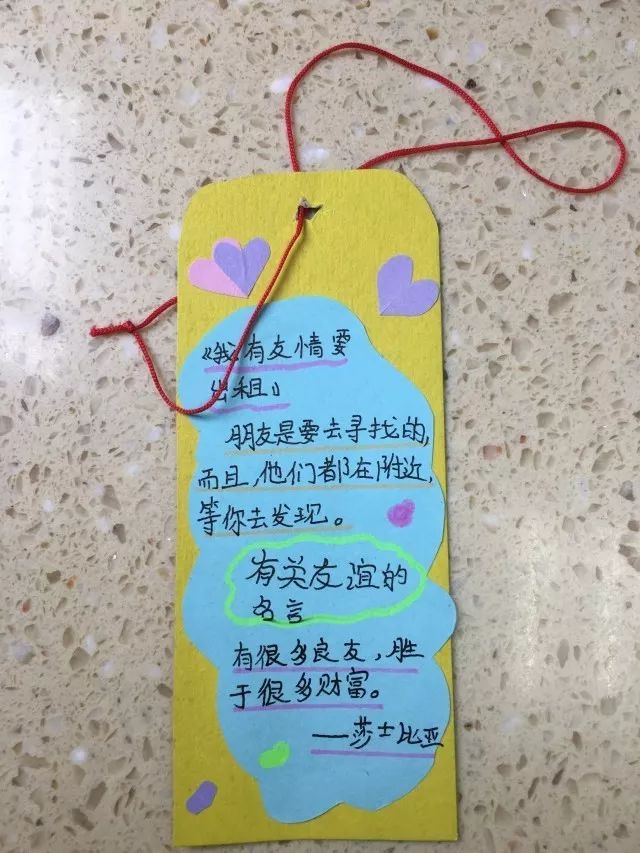 《我有友情要
出租》
朋友是要去寻找的,
而且,他们都在附近,
等你去发现。
有关友谊的
名言
有很多良友,胜
于很多财富。
——莎士比亚